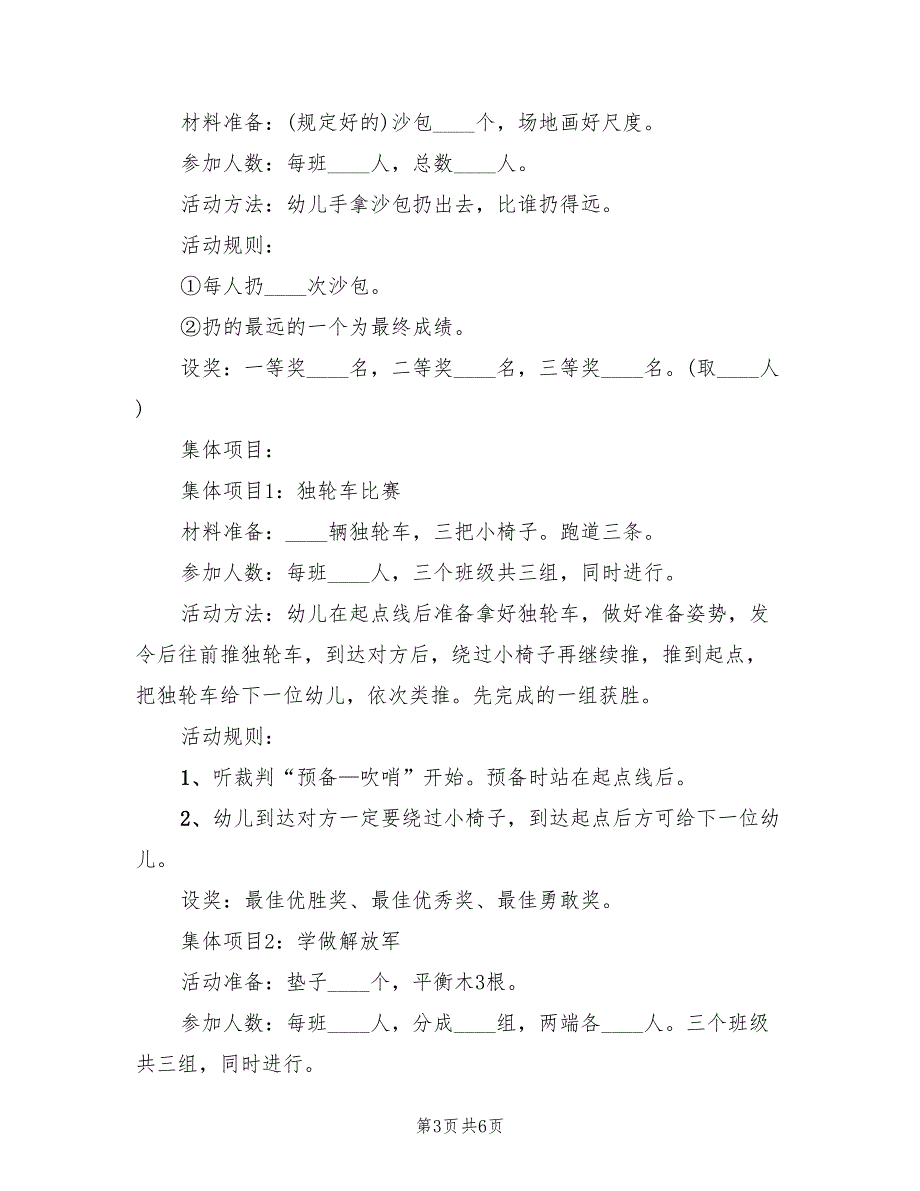 材料准备：(规定好的)沙包____个，场地画好尺度。
参加人数：每班____人，总数____人。
活动方法：幼儿手拿沙包扔出去，比谁扔得远。
活动规则：
①每人扔____次沙包。
②扔的最远的一个为最终成绩。
设奖：一等奖____名，二等奖____名，三等奖____名。(取____人
)
集体项目：
集体项目1：独轮车比赛
材料准备：____辆独轮车，三把小椅子。跑道三条。
参加人数：每班____人，三个班级共三组，同时进行。
活动方法：幼儿在起点线后准备拿好独轮车，做好准备姿势，发
令后往前推独轮车，到达对方后，绕过小椅子再继续推，推到起点，
把独轮车给下一位幼儿，依次类推。先完成的一组获胜。
活动规则：
1、听裁判“预备—吹哨”开始。预备时站在起点线后。
2、幼儿到达对方一定要绕过小椅子，到达起点后方可给下一位幼
儿。
设奖：最佳优胜奖、最佳优秀奖、最佳勇敢奖。
集体项目2：学做解放军
活动准备：垫子____个，平衡木3根。
参加人数：每班____人，分成____组，两端各____人。三个班级
共三组，同时进行。
第3页共6页